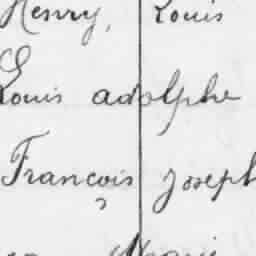 Henry, Louis
Louis adolphe
François Joseph
Marie